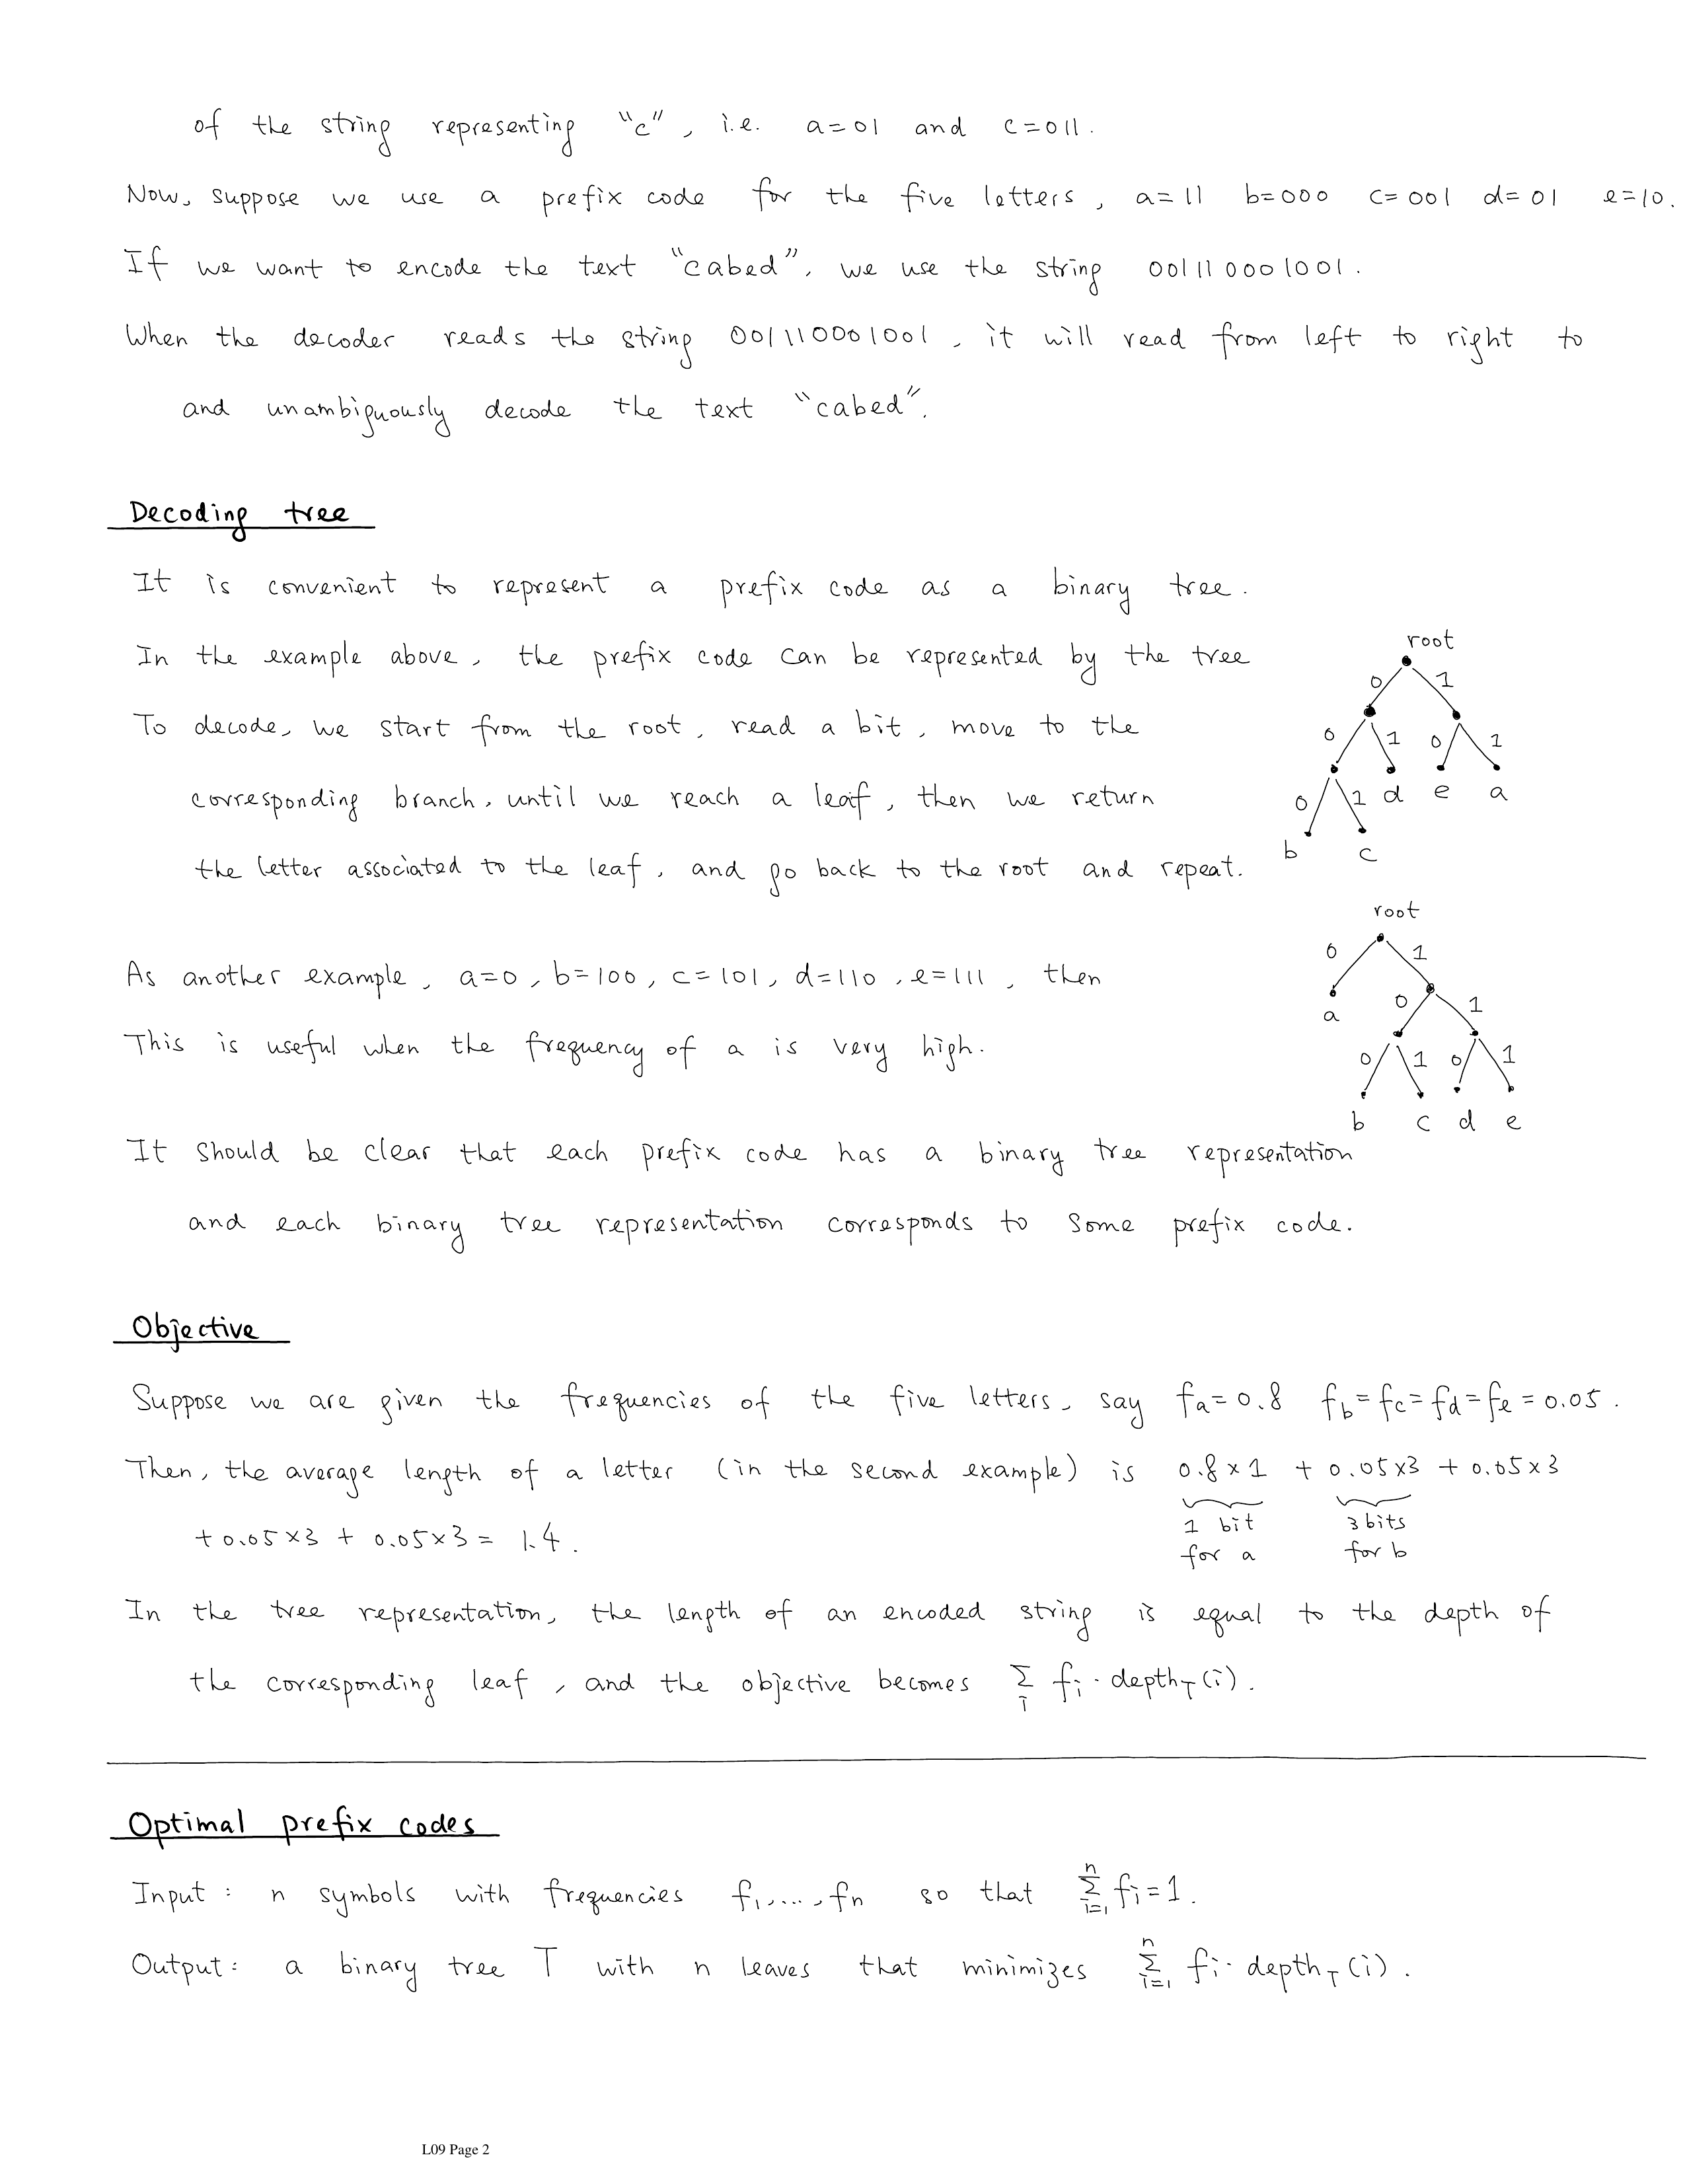 of the string representing "c", i.e. a=01 and c=011.
Now, suppose we use a prefix code for the five letters, a=11 b=000 c=001 d=01 e=10.
If we want to encode the text "cabed", we use the string 001110001001.
When the decoder reads the string 001110001001, it will read from left to right to
and unambiguously decode the text "cabed".
Decoding tree
It is convenient to represent a prefix code as a binary tree.
In the example above, the prefix code can be represented by the tree
To decode, we start from the root, read a bit, move to the
corresponding branch, until we reach a leaf, then we return
the letter associated to the leaf, and go back to the root and repeat.
root
0 1
0 1 0 1
0 1 d e a
b c
As another example, a=0, b=100, c=101, d=110, e=111, then
This is useful when the frequency of a is very high.
root
0 1
a 0 1
0 1 0 1
b c d e
It should be clear that each prefix code has a binary tree representation
and each binary tree representation corresponds to some prefix code.
Objective
Suppose we are given the frequencies of the five letters, say fa=0.8 fb=fc=fd=fe=0.05.
Then, the average length of a letter (in the second example) is 0.8×1 + 0.05×3 + 0.05×3
1 bit for a
3 bits for b
+0.05×3 + 0.05×3 = 1.4.
In the tree representation, the length of an encoded string is equal to the depth of
the corresponding leaf, and the objective becomes Σ_i f_i · depth_T(i).
Optimal prefix codes
Input: n symbols with frequencies f_1,...,f_n so that Σ_{i=1}^n f_i=1.
Output: a binary tree T with n leaves that minimizes Σ_{i=1}^n f_i · depth_T(i).
L09 Page 2